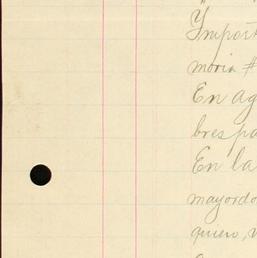 Y
Import
moria #
En ag
bres pa
En la
mayordo
quiero, v